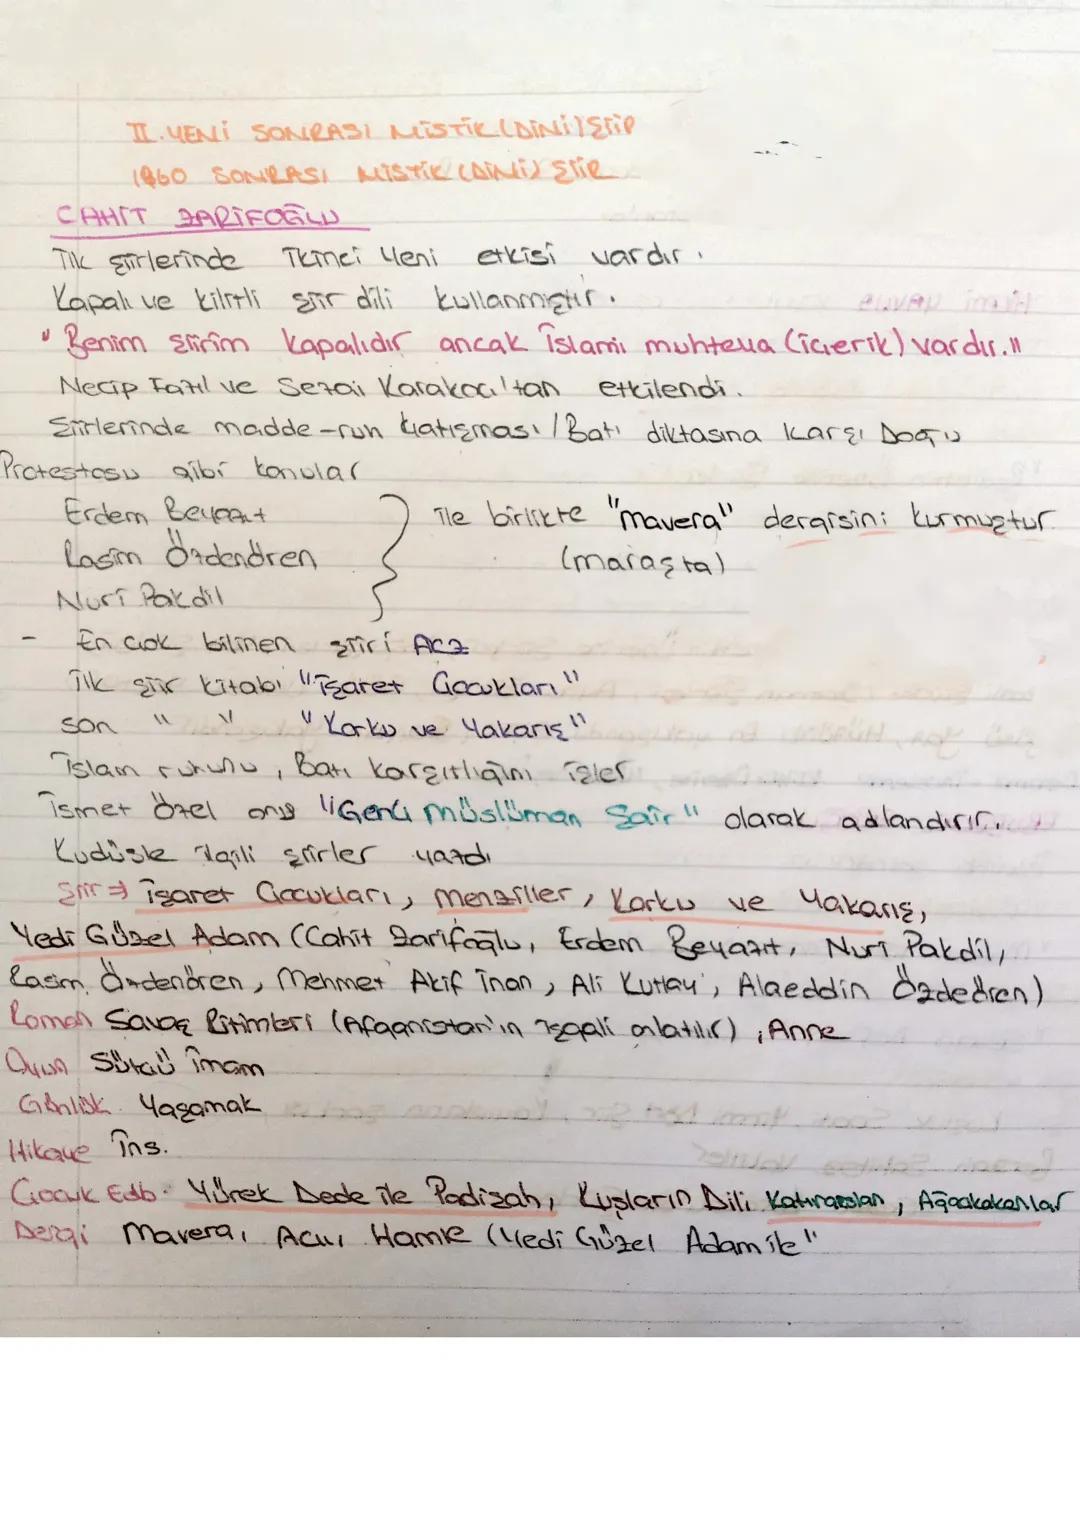 II. YENİ SONRASI MİSTİK (DİNİ) ŞİİR
1960 SONRASI MİSTİK (DİNİ) ŞİİR
CAHİT ZARİFOĞLU
İlk şiirlerinde İkinci Yeni etkisi vardır.
Kapalı ve kilitli şiir dili kullanmıştır.
"Benim şiirim kapalıdır ancak İslami muhteva (içierik) vardır."
Necip Fazıl ve Sezai Karakoç'tan etkilendi.
Şiirlerinde madde-ruh çatışması / Batı diktasına karşı Doğu
Protestosu gibi konular
Erdem Beyazıt
Rasim Özdenören
Nuri Pakdil
ile birlikte "mavera" dergisini kurmuştur
(maraşta)
- En çok bilinen şiiri Acz
İlk şiir kitabı "İşaret Çocukları"
son " " "Korku ve Yakarış"
İslam ruhunu, Batı karşıtlığını işler
İsmet Özel onu "Genç Müslüman Şair" olarak adlandırır.
Kudüsle ilgili şiirler yazdı
Şiir ⇒ İşaret Çocukları, Menziller, Korku ve Yakarış,
Yedi Güzel Adam (Cahit Zarifoğlu, Erdem Beyazıt, Nuri Pakdil,
Rasim Özdenören, Mehmet Akif İnan, Ali Kutlay, Alaeddin Özdeören)
Roman Savaş Ritimleri (Afganistan'ın işgali anlatılır), Anne
Oyun Sütçü İmam
Günlük Yaşamak
Hikaye İns.
Çocuk Edb. Yürek Dede ile Padişah, Kuşların Dili Katıraslan, Ağaçkakanlar
Dergi Mavera, Acui Hamle (Yedi Güzel Adam ile"